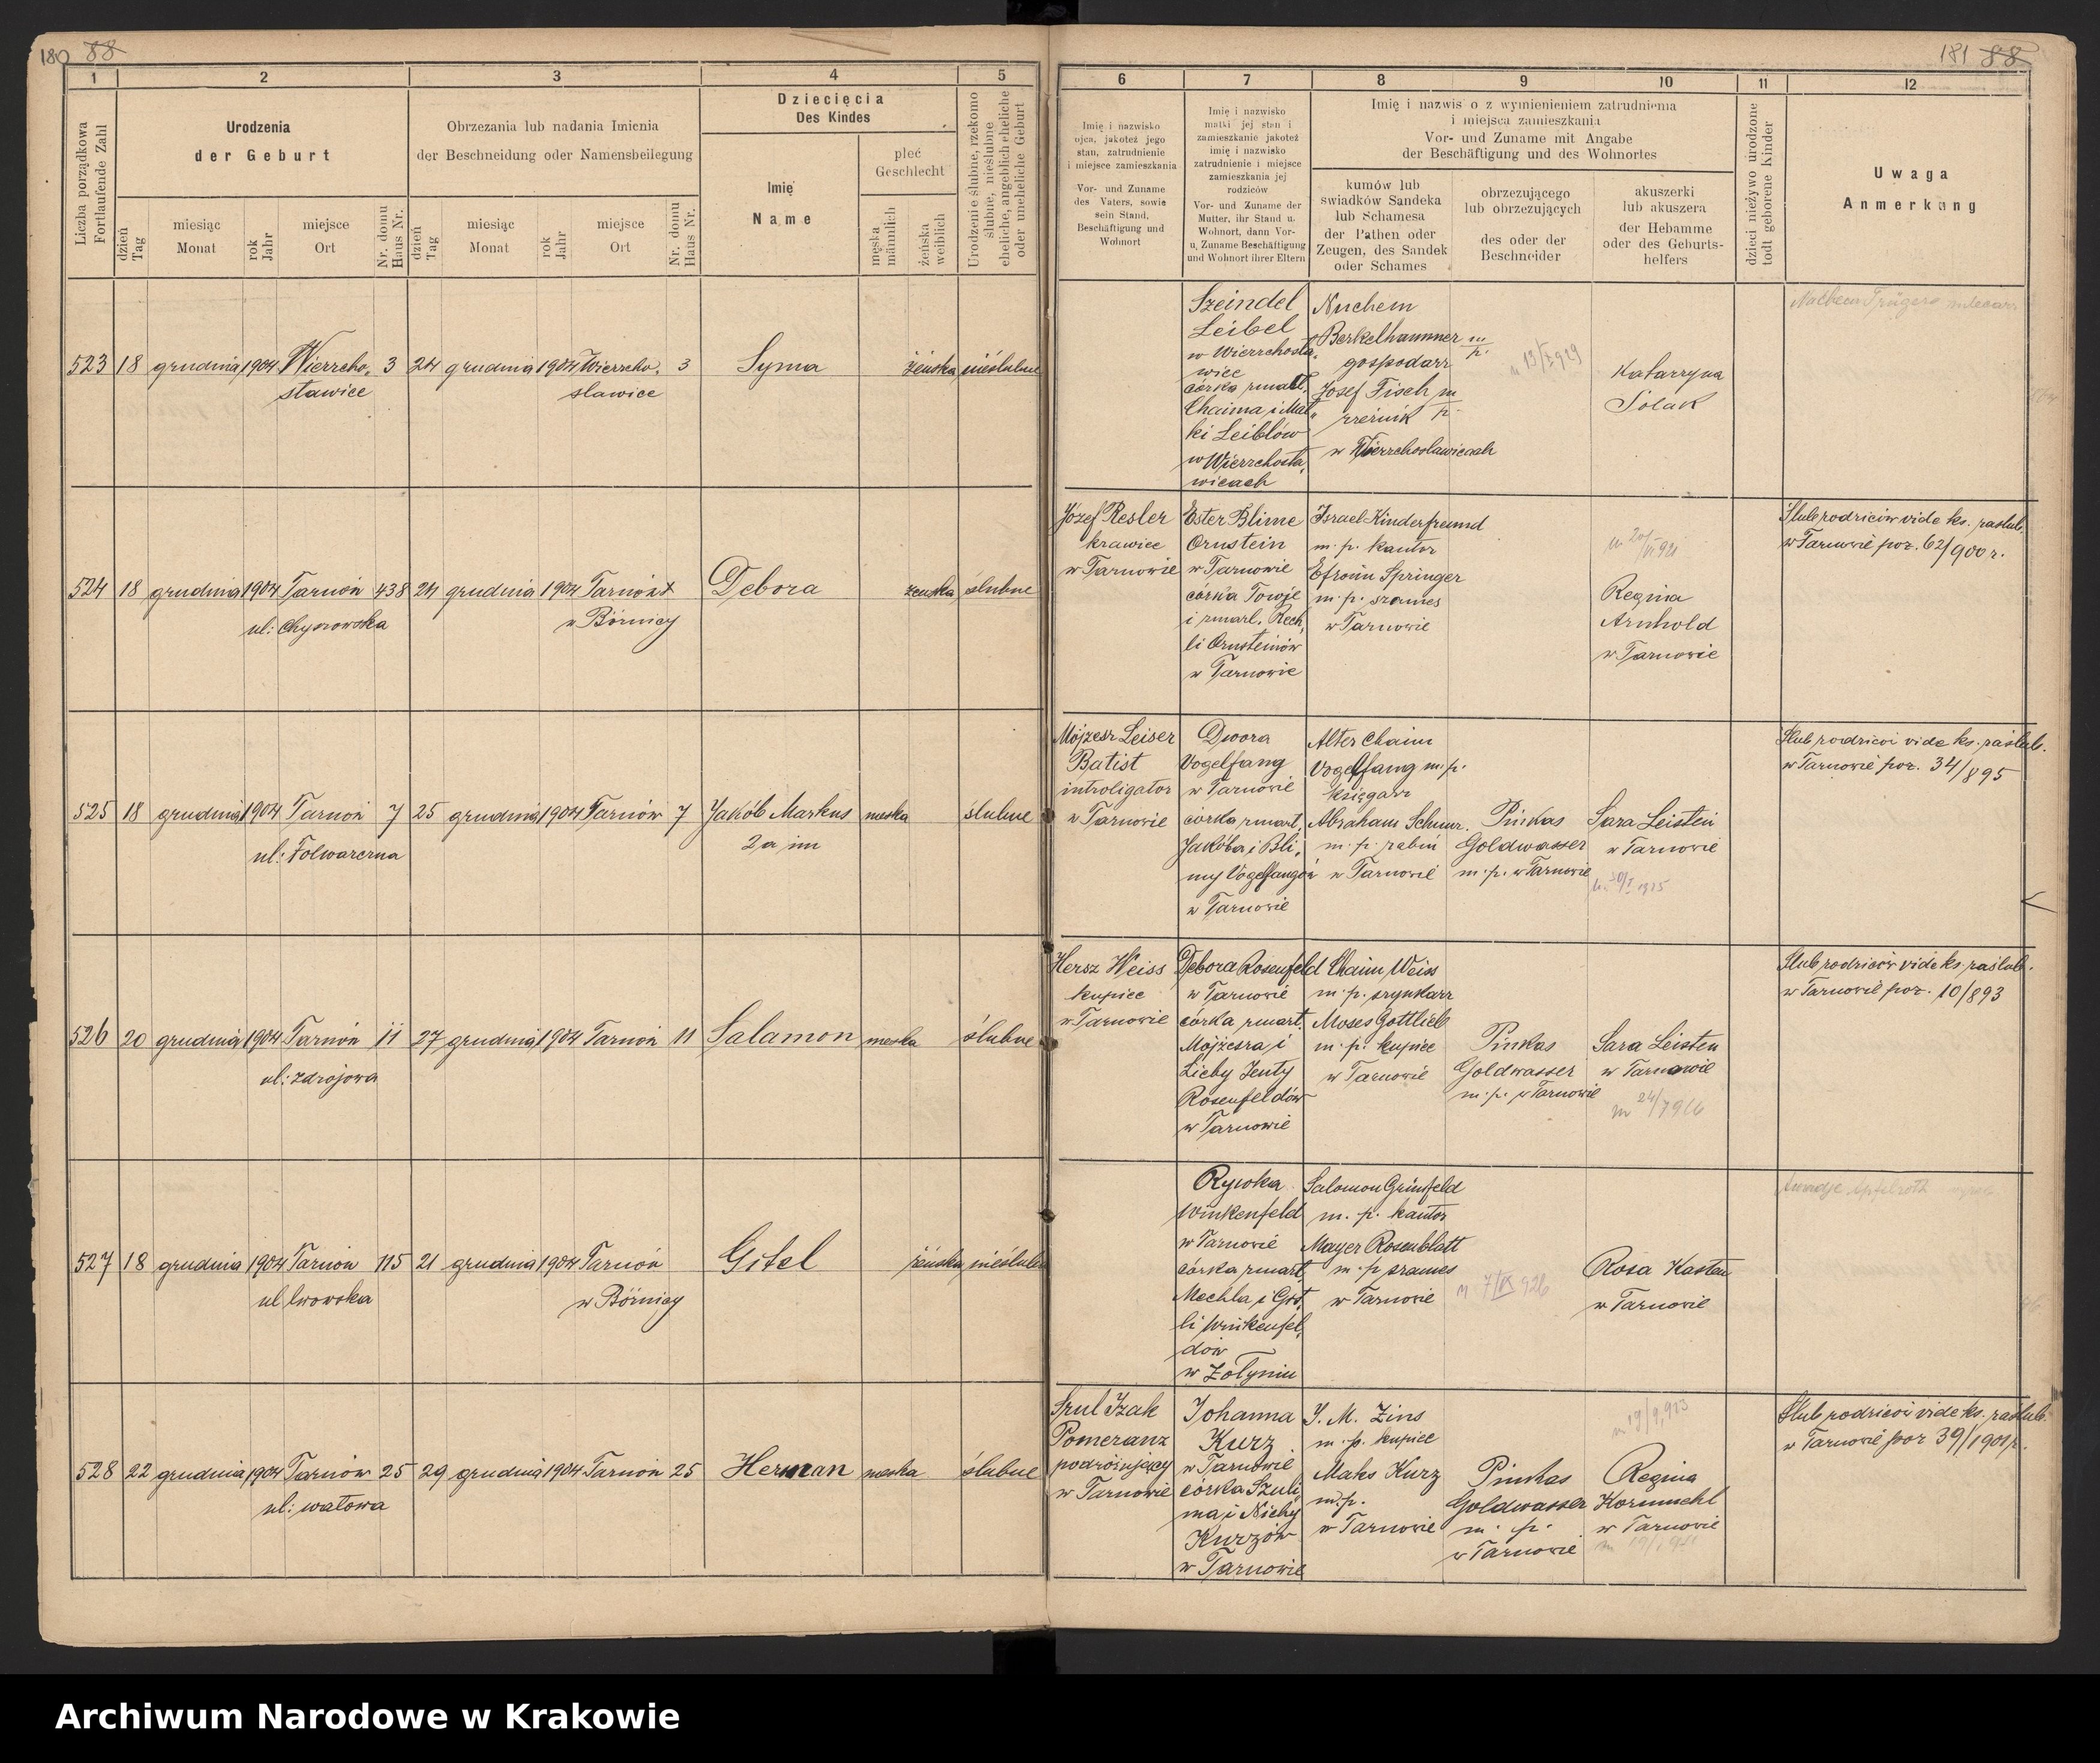 180 88
181 88
1 2 3 4 5 6 7 8 9 10 11 12
Liczba porządkowa
Fortlaufende Zahl
Urodzenia
der Geburt
dzień
Tag
miesiąc
Monat
rok
Jahr
miejsce
Ort
Nr. domu
Haus Nr.
Obrzezania lub nadania Imienia
der Beschneidung oder Namensbeilegung
dzień
Tag
miesiąc
Monat
rok
Jahr
miejsce
Ort
Nr. domu
Haus Nr.
Dziecięcia
Des Kindes
Imię
Name
płeć
Geschlecht
męska
männlich
żeńska
weiblich
Urodzenie ślubne, rzekomo
ślubne, nieślubne
eheliche, angeblich eheliche
oder uneheliche Geburt
Imię i nazwisko
ojca, jakoteż jego
stan, zatrudnienie
i miejsce zamieszkania
Vor- und Zuname
des Vaters, sowie
sein Stand,
Beschäftigung und
Wohnort
Imię i nazwisko
matki jej stan i
zamieszkanie jakoteż
imię i nazwisko
zatrudnienie i miejsce
zamieszkania jej
rodziców
Vor- und Zuname der
Mutter, ihr Stand u.
Wohnort, dann Vor-
u, Zuname Beschäftigung
und Wohnort ihrer Eltern
Imię i nazwis o z wymienieniem zatrudnienia
i miejsca zamieszkania
Vor- und Zuname mit Angabe
der Beschäftigung und des Wohnortes
kumów lub
swiadków Sandeka
lub Schamesa
der Pathen oder
Zeugen, des Sandek
oder Schames
obrzezującego
lub obrzezujących
des oder der
Beschneider
akuszerki
lub akuszera
der Hebamme
oder des Geburts-
helfers
dzieci nieżywo urodzone
todt geborene Kinder
Uwaga
Anmerkung
523 18 grudnia 1904 Wierzcho, 3 24 grudnia 1904 Wierzcho, 3 Syma żeńska nieślubne
sławice sławice
Szeindel
Leibel
w Wierzchosła,
wice
córka zmarł.
Chaima i Mal,
ki Leiblów
w Wierzchosła,
wicach
Nuchem
Berkelhammer m
p.
gospodarz
Josef Fisch m
rzeźnik p.
w Wierzchosławicach
Katarzyna
Solak
524 18 grudnia 1904 Tarnów 438 24 grudnia 1904 Tarnów Debora żeńska ślubne
ul: Chyszowska w Bóżnicy
Józef Resler
krawiec
w Tarnowie
Ester Blime
Ornstein
w Tarnowie
córka Towje
i zmarł. Rech,
li Ornsteinów
w Tarnowie
Israel Kinderfreund
m. p. kantor
Efroim Springer
m. p. szames
w Tarnowie
Regina
Arnhold
w Tarnowie
Slub rodziców vide ks. zaślub.
w Tarnowie poz. 62/900 r.
525 18 grudnia 1904 Tarnów 7 25 grudnia 1904 Tarnów 7 Jakób Markus męska ślubne
ul: Folwarczna 2a im
Mojzesz Leiser
Batist
introligator
w Tarnowie
Dwora
Vogelfang
w Tarnowie
córka zmarł.
Jakóba i Bli,
my Vogelfangów
w Tarnowie
Alter Chaim
Vogelfang m. p.
księgarz
Abraham Schnur.
m. p. rabin
w Tarnowie
Pinkas
Goldwasser
m. p. w Tarnowie
Sara Leisten
w Tarnowie
Slub rodziców vide ks. zaślub.
w Tarnowie poz. 34/895
526 20 grudnia 1904 Tarnów 11 27 grudnia 1904 Tarnów 11 Salamon męska ślubne
ul: zdrojowa
Hersz Weiss
kupiec
w Tarnowie
Debora Rosenfeld
w Tarnowie
córka zmarł.
Mojżesza i
Lieby Jenty
Rosenfeldów
w Tarnowie
Chaim Weiss
m. p. szynkarz
Moses Gottlieb
m. p. kupiec
w Tarnowie
Pinkas
Goldwasser
m. p. w Tarnowie
Sara Leisten
w Tarnowie
Slub rodziców vide ks. zaślub.
w Tarnowie poz. 10/893
527 18 grudnia 1904 Tarnów 115 21 grudnia 1904 Tarnów Gitel żeńska nieślubne
ul lwowska w Bóżnicy
Rywka
Winkenfeld
w Tarnowie
córka zmarł.
Mechla i Git,
li Winkenfel,
dów
w Żołyniu
Salomon Grünfeld
m. p. kantor
Mayer Rosenblatt
m. p. szames
w Tarnowie
Rosa Kasten
w Tarnowie
528 22 grudnia 1904 Tarnów 25 29 grudnia 1904 Tarnów 25 Herman męska ślubne
ul: wałowa
Srul Izak
Pomeranz
podróżujący
w Tarnowie
Johanna
Kurz
w Tarnowie
córka Szuli,
ma i Nichy
Kurzów
w Tarnowie
J. M. Zins
m. p. kupiec
Maks Kurz
m. p.
w Tarnowie
Pinkas
Goldwasser
m. p.
w Tarnowie
Regina
Kornmehl
w Tarnowie
Slub rodziców vide ks. zaślub.
w Tarnowie poz 39/1901 r.
Archiwum Narodowe w Krakowie